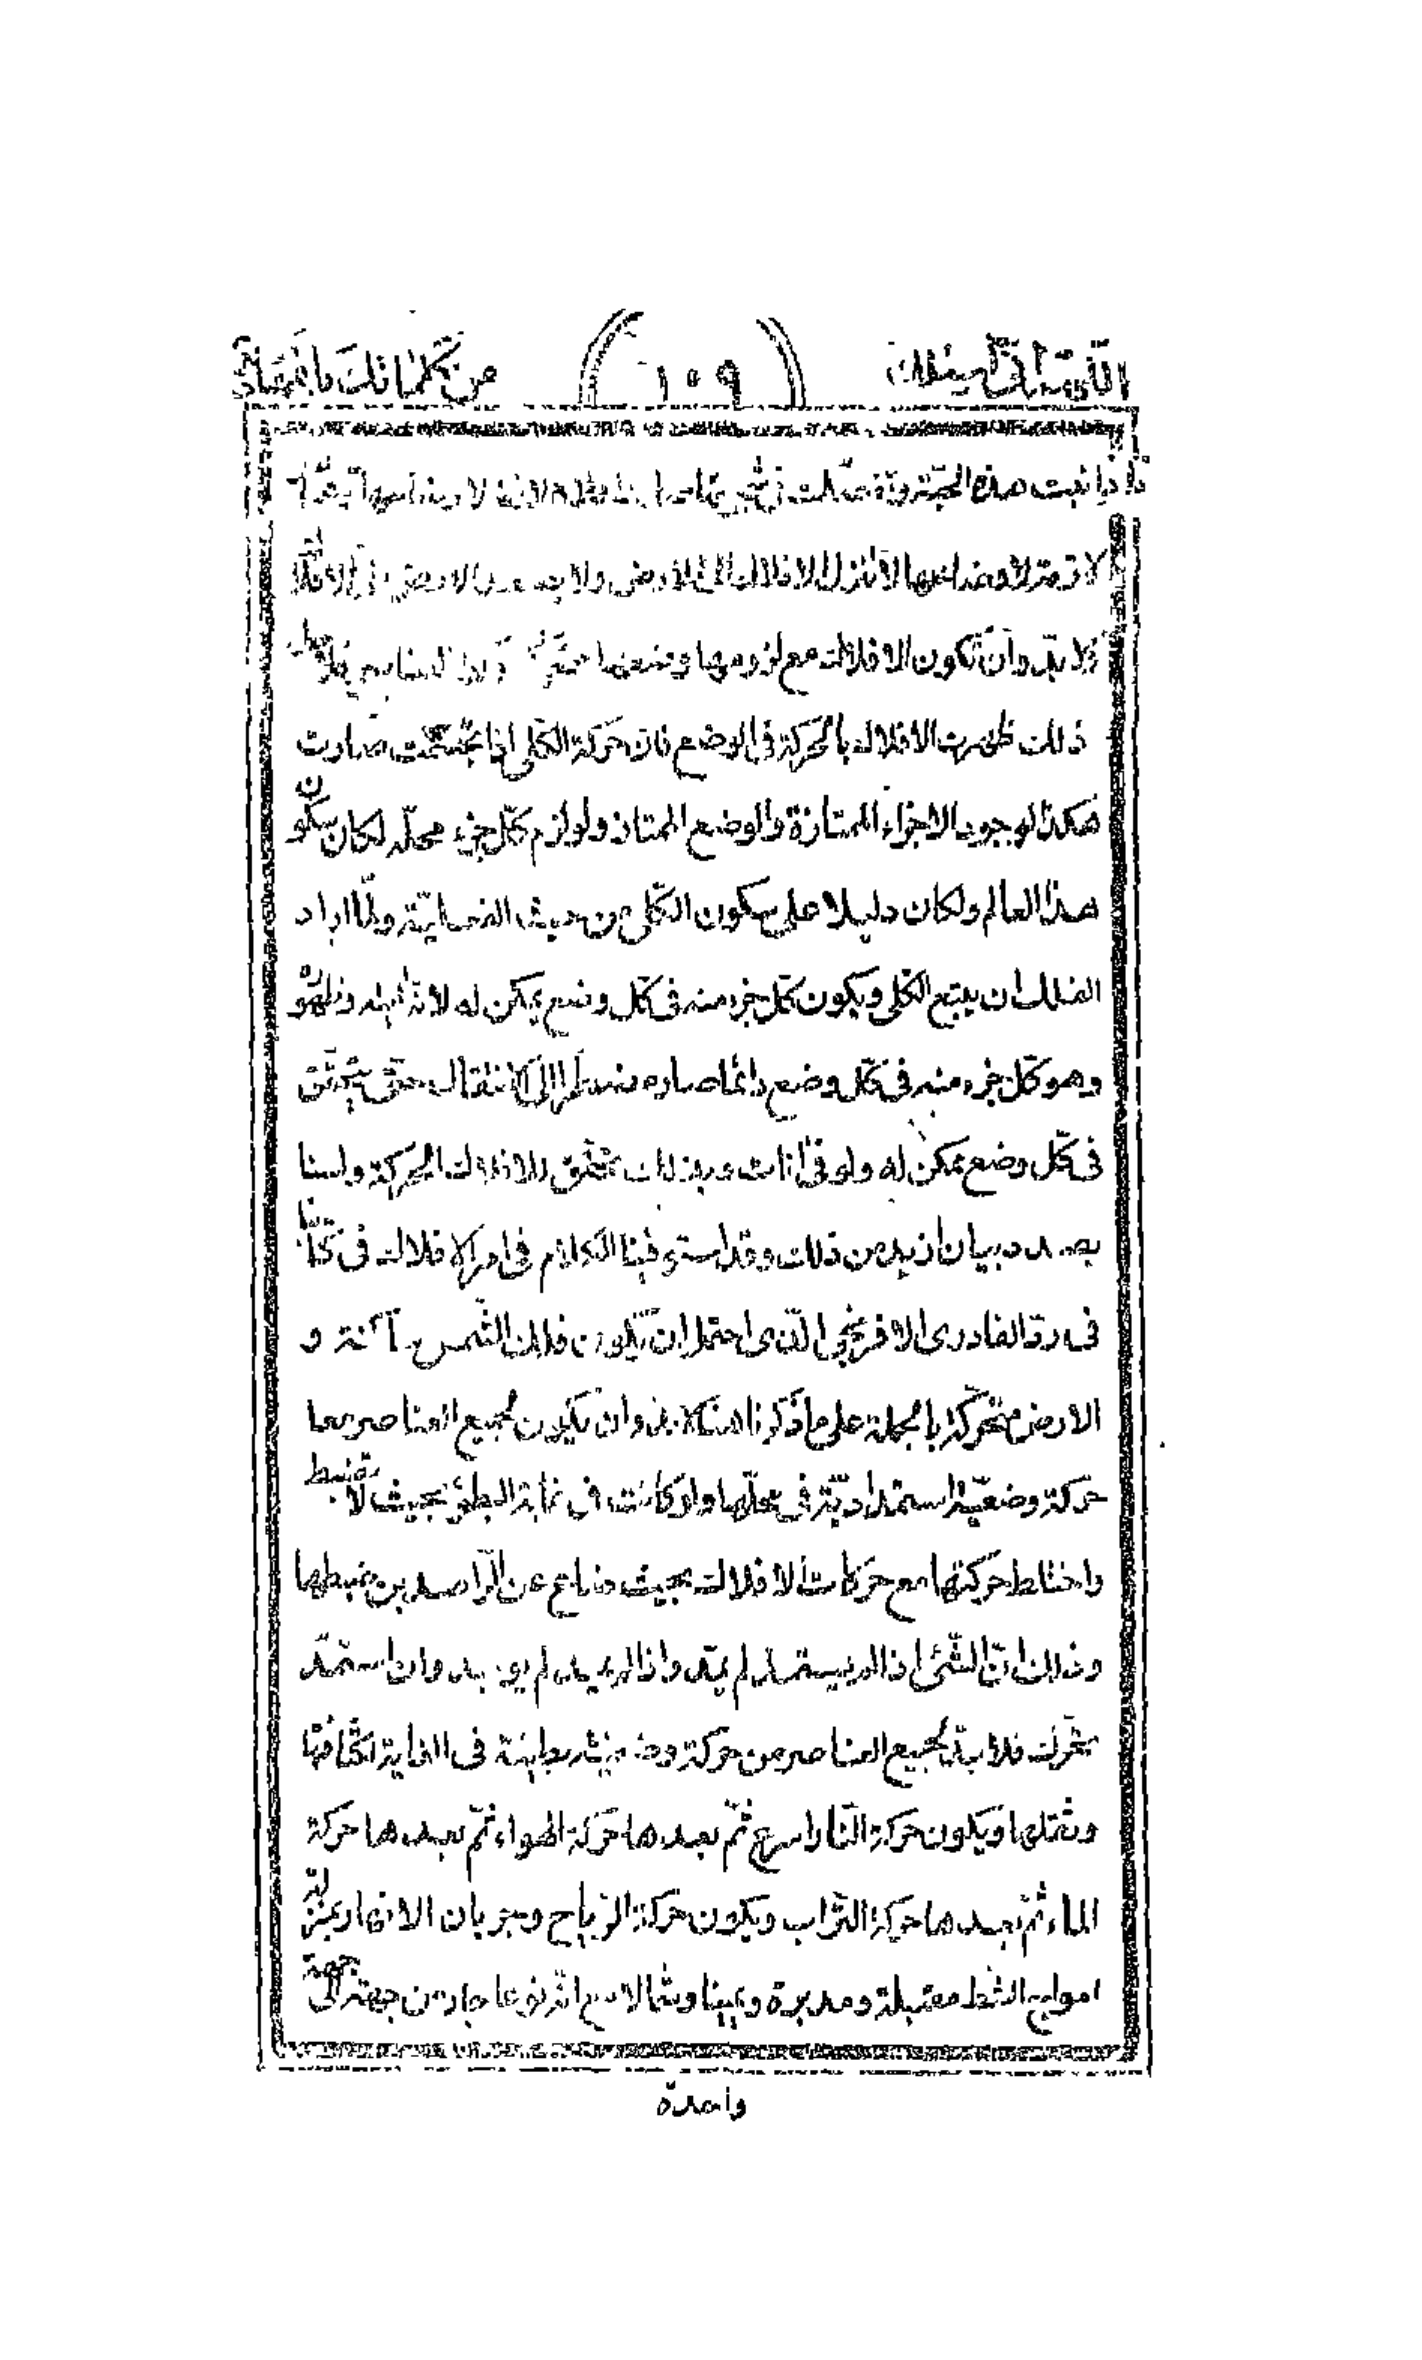 اللهم انى اسئلك ١٠٩ من كلماتك باتمها
ثبت هذه
لازمة لاوضاعها لا تنزل الافلاك الى الارض ولا
فلا بد وان تكون الافلاك مع لزومها وضعها
ذلك ظهرت الافلاك بالحركة فى الوضع فان حركة الكلى اذا تجسمت صارت
هكذا لوجود الاجزاء الممتازة والوضع الممتاز ولو لزم كل جزء محله لكان سكون
هذا العالم ولكان دليلا على سكون الكلى من حيث الفعلية ولما اراد
الفلك ان يتبع الكلى ويكون كل جزء منه فى كل وضع يمكن له لانه وظهوره
وهو كل جزء منه فى كل وضع دائما صار مضطرا الى الانتقال حتى يتحقق
فى كل وضع يمكن له ولو فى انات وبذلك تحقق للافلاك الحركة ولسنا
بصدد بيان ازيد من ذلك وقد استوفينا الكلام فى امر الافلاك فى كتابنا
فى رد الفادرى الافرنجى الذى احتمل ان تكون فلك الشمس ساكنة و
الارض متحركة بالجملة على ما ذكرنا هنا لابد وان يكون لجميع العناصر معا
حركة وضعية استمدادية فى محلها ولو كانت فى غاية البطؤ بحيث لا تضبط
واختلط حركتها مع حركات الافلاك بحيث ضاع عن الراصدين ضبطها
وذلك ان الشئ اذا لم يستمد لم يمد واذا لم يمد لم يوجد وان استمد
تحرك فلا بد لجميع العناصر من حركة وضعية بطيئة فى الغاية لكثافتها
وثقلها ويكون حركة النار اسرع ثم بعدها حركة الهواء ثم بعدها حركة
الماء ثم بعدها حركة التراب ويكون حركة الرياح وجريان الانهار بمنزلة
امواج الشط مقبلة ومدبرة ويمينا وشمالا مع انه نوعا جار من جهة الى جهة
واحدة